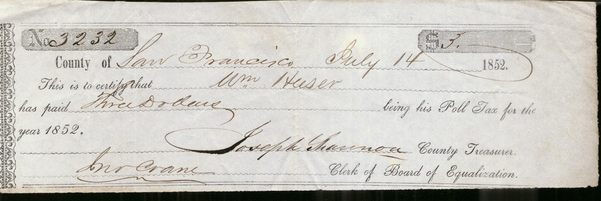 No 3232 $3.
County of San Francisco July 14 1852.
This is to certify that Wm Huser
has paid Three Dollars being his Poll Tax for the
year 1852.
Joseph Shannon County Treasurer.
Jno Crane Clerk of Board of Equalization.